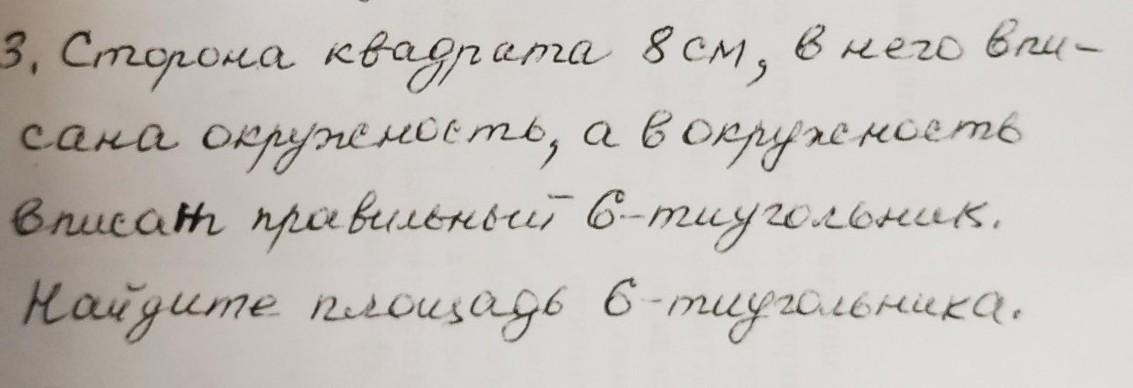 3. Сторона квадрата 8 см, в него впи-
сана окружность, а в окружность
вписан правильный 6-тиугольник.
Найдите площадь 6-тиугольника.